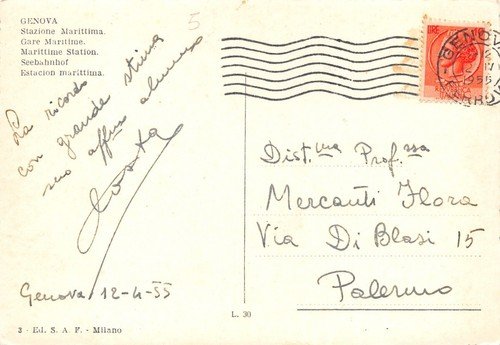 GENOVA
Stazione Marittima.
Gare Maritime.
Marittime Station.
Seebahnhof
Estacion marittima.
5
La ricordo
con grande stima
suo affmo alunno
Costa
Genova 12-4-55
3 - Ed. S. A. F. - Milano
L. 30
GENOVA
Dist.ma Prof.ssa
Mercanti Flora
Via Di Blasi 15
Palermo